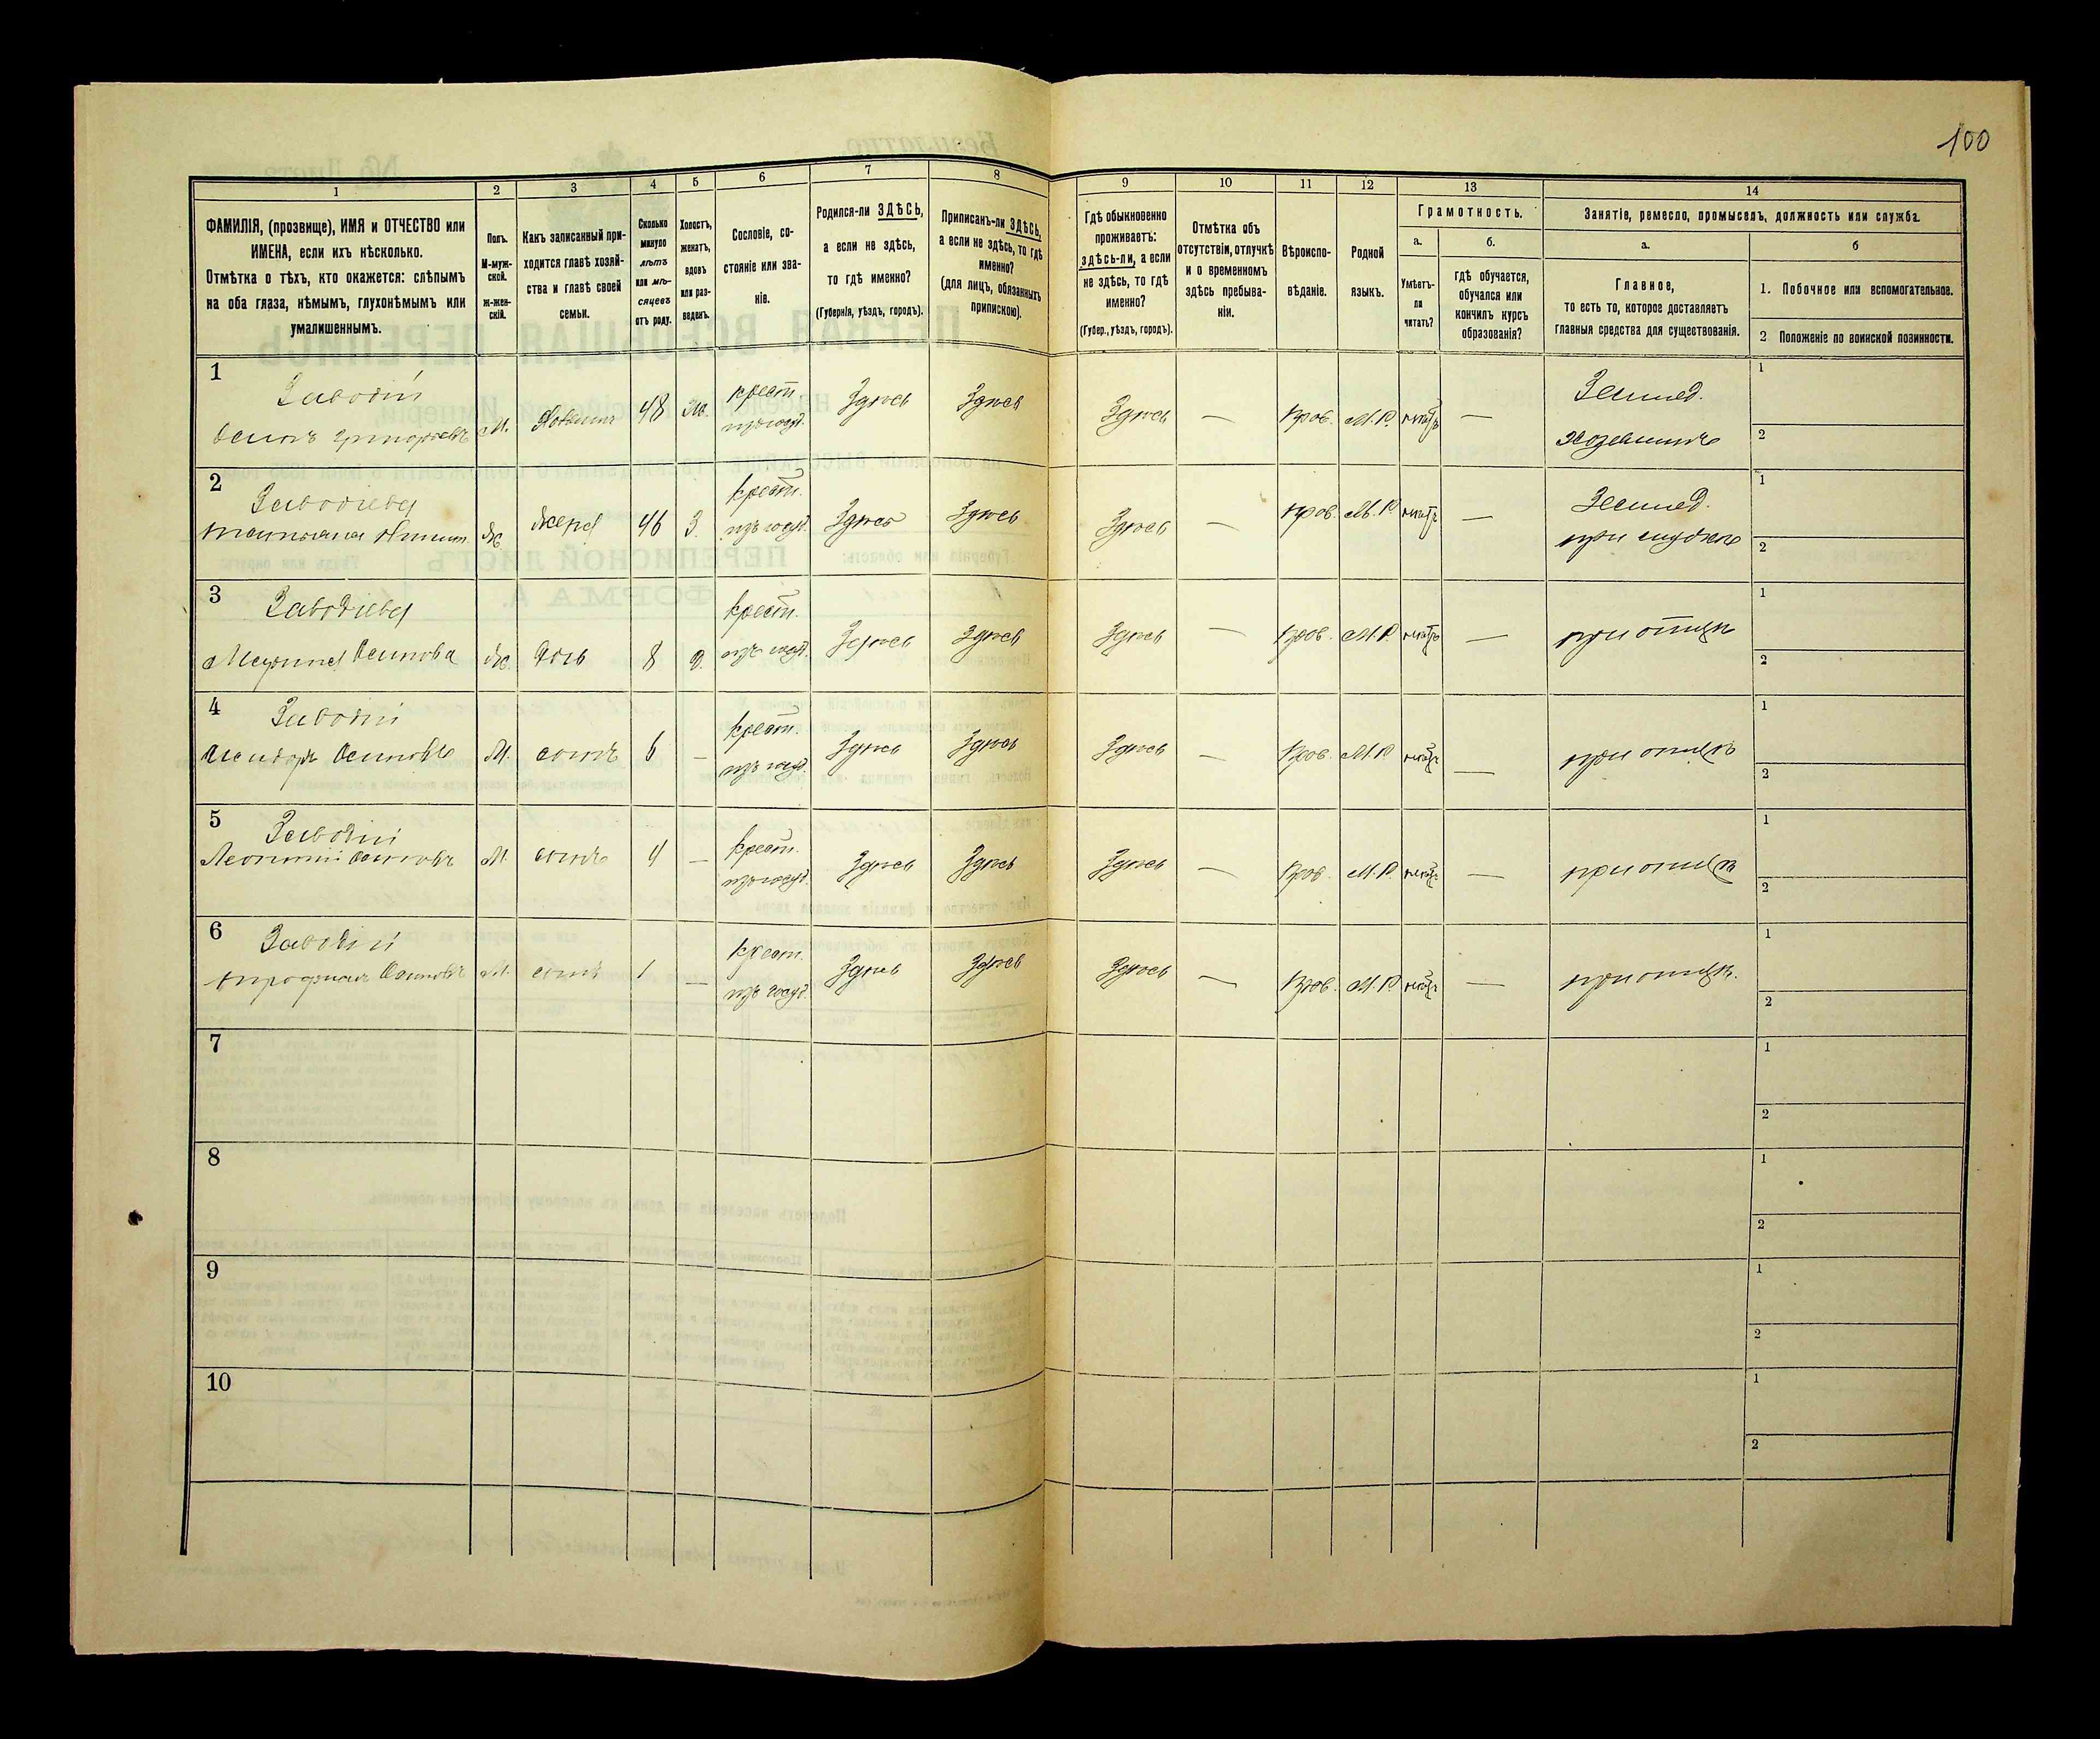 100
1
2
3
4
5
6
7
8
9
10
11
12
13
14
ФАМИЛІЯ, (прозвище), ИМЯ и ОТЧЕСТВО или
ИМЕНА, если ихъ нѣсколько.
Отмѣтка о тѣхъ, кто окажется: слѣпымъ
на оба глаза, нѣмымъ, глухонѣмымъ или
умалишеннымъ.
Полъ.
М-муж-
ской.
ж-жен-
скій.
Какъ записанный при-
ходится главѣ хозяй-
ства и главѣ своей
семьи.
Сколько
минуло
лѣтъ
или мѣ-
сяцевъ
отъ роду.
Холостъ,
женатъ,
вдовъ
или раз-
веденъ.
Сословіе, со-
стояніе или зва-
ніе.
Родился-ли ЗДѢСЬ,
а если не здѣсь,
то гдѣ именно?
(Губернія, уѣздъ, городъ).
Приписанъ-ли ЗДѢСЬ,
а если не здѣсь, то гдѣ
именно?
(для лицъ, обязанныхъ
припискою).
Гдѣ обыкновенно
проживаетъ:
здѣсь-ли, а если
не здѣсь, то гдѣ
именно?
(Губер., уѣздъ, городъ).
Отмѣтка объ
отсутствіи, отлучкѣ
и о временномъ
здѣсь пребыва-
ніи.
Вѣроиспо-
вѣданіе.
Родной
языкъ.
Грамотность.
а.
Умѣетъ-
ли
читать?
б.
гдѣ обучается,
обучался или
кончилъ курсъ
образованія?
Занятіе, ремесло, промыселъ, должность или служба.
а.
Главное,
то есть то, которое доставляетъ
главныя средства для существованія.
б
1. Побочное или вспомогательное.
2 Положеніе по воинской повинности.
1
Заводній
Осипъ Григорьевъ М. 48 жа. крест. Здѣсь Здѣсь Здѣсь — Прав. М.Р. — Землед.
изъ госуд. хозяинъ
1
2
2
Татьяна Ж. жена 46 З. крест. Здѣсь Здѣсь Здѣсь — Прав. М.Р. — Землед.
изъ госуд.
1
2
3
Осипова Ж. дочь 8 д. крест. Здѣсь Здѣсь Здѣсь — Прав. М.Р. — при отцѣ
изъ госуд.
1
2
4
Заводній
Осиповъ М. сынъ 6 — крест. Здѣсь Здѣсь Здѣсь — Прав. М.Р. — при отцѣ
изъ госуд.
1
2
5
Заводній
Леонтій Осиповъ М. сынъ 4 — крест. Здѣсь Здѣсь Здѣсь — Прав. М.Р. — при отцѣ
изъ госуд.
1
2
6
Заводній
Осиповъ М. сынъ 1 — крест. Здѣсь Здѣсь Здѣсь — Прав. М.Р. — при отцѣ.
изъ госуд.
1
2
7
1
2
8
1
2
9
1
2
10
1
2